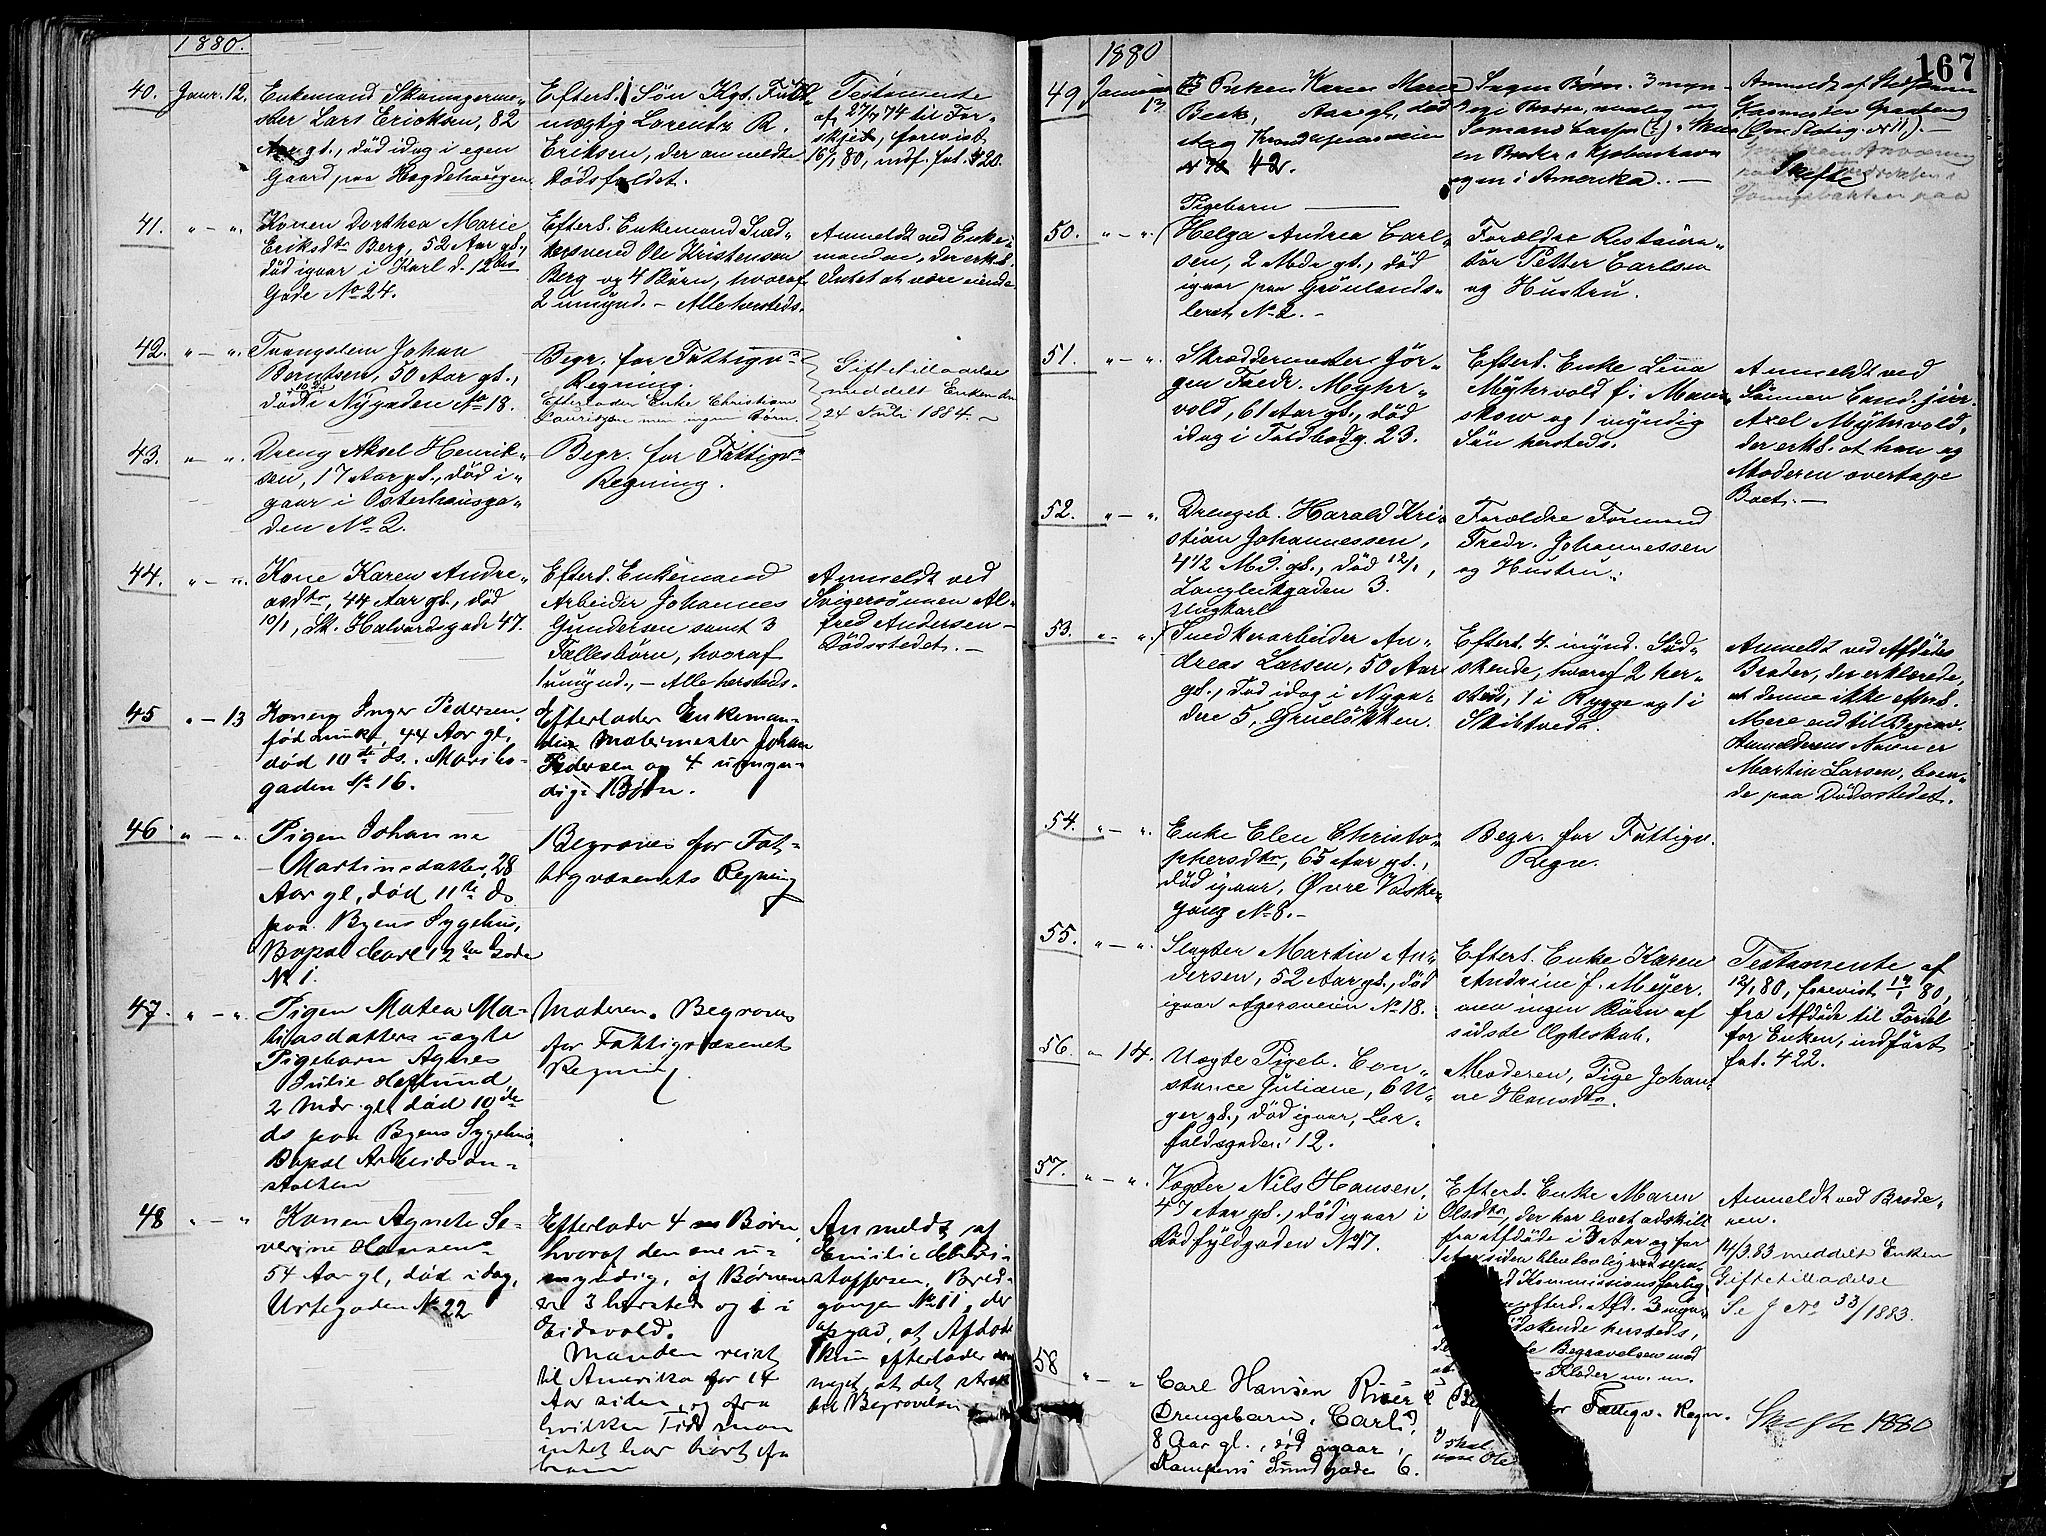 1880.
40. Janr. 12. Enkemand Skomagerme-
ster Lars Ericksen, 82
Aar gl., död idag i egen
Gaard paa Hægdehaugen
Efterl. 1 Sön Kgl. Fuld-
mægtig Lorentz R.
Eriksen, der anmeldte
Dödsfaldet.
Testamente
af 27/7 74 til For-
skjel, forevist
16/1 80, indf. fol. 420.
41. " — " Konen Dorthea Marie
Eriksdtr Berg, 52 Aar gl.,
död igaar i Karl d. 12tes
Gade No 24.
Efterl. Enkemand Sned-
kersvend Ole Kristensen
Berg og 4 Börn, hvoraf
2 umynd. – Alle hersteds.
Anmeldt ved Enke-
manden, der erkl.
Intet at være i ende
42. " — " Johan
Berntsen, 50 Aar gl.,
död i Nygaden No 18.
Begr. for Fattigv.
Regning.
Efterlader Enke Christiane
Lauritzen men ingen Börn.
Giftetilladelse
meddelt Enken den
24 Juli 1884. –
43. " — " Dreng Aksel Henrik-
sen, 17 Aar gl., död i-
gaar i Osterhausga-
den No 2.
Begr. for Fattigv.
Regning.
44. " — " Kone Karen Andre-
asdtr, 44 Aar gl., död
10/1, St. Halvardsgade 47.
Efterl. Enkemand
Arbeider Johannes
Gundersen samt 3
Fællesbörn, hvoraf
1 umynd., – Alle hersteds.
Anmeldt ved
Svigersönnen Al-
fred Andersen –
Dödsstedet. –
45 " — 13 Konen Inger Pedersen,
född , 44 Aar gl,
död 10de ds. Maribo-
gaden No 16.
Efterlader Enkeman-
den Malermester Johan
Pedersen og 4 umyn-
dige Börn.
46 " — " Pigen Johanne
Martinsdatter, 28
Aar gl, död 11te ds
paa Byens Sygehus,
Bopæl Carl 12tes Gade
No 1.
Begraves for Fat-
tigvæsenets Regning
47. " — " Pigen Matea Ma-
thiasdatters uægte
Pigebarn Agnes
Julie Höglund,
2 Mdr gl, död 10de
ds paa Byens Sygehus
Bopæl Arbeidsan-
stalten
Moderen. Begraves
for Fattigvæsenets
Regning
48 " — " Konen Agnete Se-
verine Hansen
54 Aar gl, död idag,
Urtegaden No 22
Efterlader 4 Börn,
hvoraf den ene u-
myndig, af Börnene
ere 3 hersteds og 1 i
Eidsvold.
Manden reist
til Amerika for 14
Aar siden, og fra
hvilken Tid man
intet har hört fra
ham
Anmeldt af
Emilie Chri-
stoffersen, Bred-
gangen No 11, der
opgav, at Afdöde
kun efterlader
noget, at det strax
til Begravelsen
167
1880
49 Januar
13 Pigen Karen Marie
Beck, Aar gl, död
idag Trondhjemsveien
No 42.
Ingen Börn. 3 myn-
dige Brödre, nemlig
en Bæker i Kjöbenhavn
og en i Amerika. –
Anmeldt af
Skifte
50. " — " Pigebarn
Helga Andrea Carl-
sen, 2 Mdr gl., död
igaar paa Grönlands-
leret No 2. –
Forældre Restaura-
tör Petter Carlsen
og Hustru.
51. " — " Skræddermester Jör-
gen Fredr. Myhr-
vold, 61 Aar gl., död
idag i Toldbodg. 23.
Efterl. Enke Lina
Myhrvold f.
og 1 myndig
Sön hersteds.
Anmeldt ved
Sönnen Cand. jur.
Axel Myhrvold,
der erkl. at han og
Moderen overtage
Boet. –
52. " — " Drengeb. Harald Kri-
stian Johannessen,
4 1/2 Md. gl., död 12/1,
Langleikgaden 3.
Forældre Formand
Fredr. Johannessen
og Hustru.
53. " — " Ungkarl
Snedkerarbeider An-
dreas Larsen, 50 Aar
gl., död idag i Nyga-
den 5, Grünelökken.
Efterl. 4 mynd. Söd-
skende, hvoraf 2 her-
steds, 1 i Rygge og 1 i
Skiktvedt.
Anmeldt ved Afdödes
Broder, der erklærede,
at denne ikke efterl.
Mere end til Begrav.
Anmelderens Navn er
Martin Larsen, boen-
de paa Dödsstedet.
54. " — " Enke Elen Christo-
phersdtr, 65 Aar gl.,
död igaar, Övre Vaske-
gang No 8. –
Begr. for Fattigv.
Regn.
55. " — " Slagter Martin An-
dersen, 52 Aar gl., död
igaar Agersveien No 18.
Efterl. Enke Karen
Andrine f. Meyer.
men ingen Börn af
sidste Ægteskab.
Testamente af
12/1 80, forevist 14/1 80,
fra Afdöde til Fordel
for Enken, indfört
fol. 422.
56. " 14. Uægte Pigeb. Con-
stance Juliane, 6 U-
ger gl., död igaar, Ler-
foldsgaden 12.
Moderen, Pige Johan-
ne Hansdtr.
57. " — " Vægter Nils Hansen,
47 Aar gl., död igaar i
Rödfyldgaden No 47.
Efterl. Enke Maren
Olsdtr, der har levet adskilt
fra Afdöde i 3 Aar og for
siden blev lovlig sepa-
Kommissionsforlig
efterl. Afd. 3 myn.
Södskende hersteds,
Begravelsen med
Klæder m. m.
Anmeldt ved Brode-
ren.
14/3 83 meddelt Enken
Giftetilladelse
Se J No 33/1883.
58 " — " Carl Hansen
Drengebarn, Carl
8 Aar gl., död igaar i
Kampens Smedgade 6.
for Fattigv. Regn.
skal
være Ole
Skifte 1880